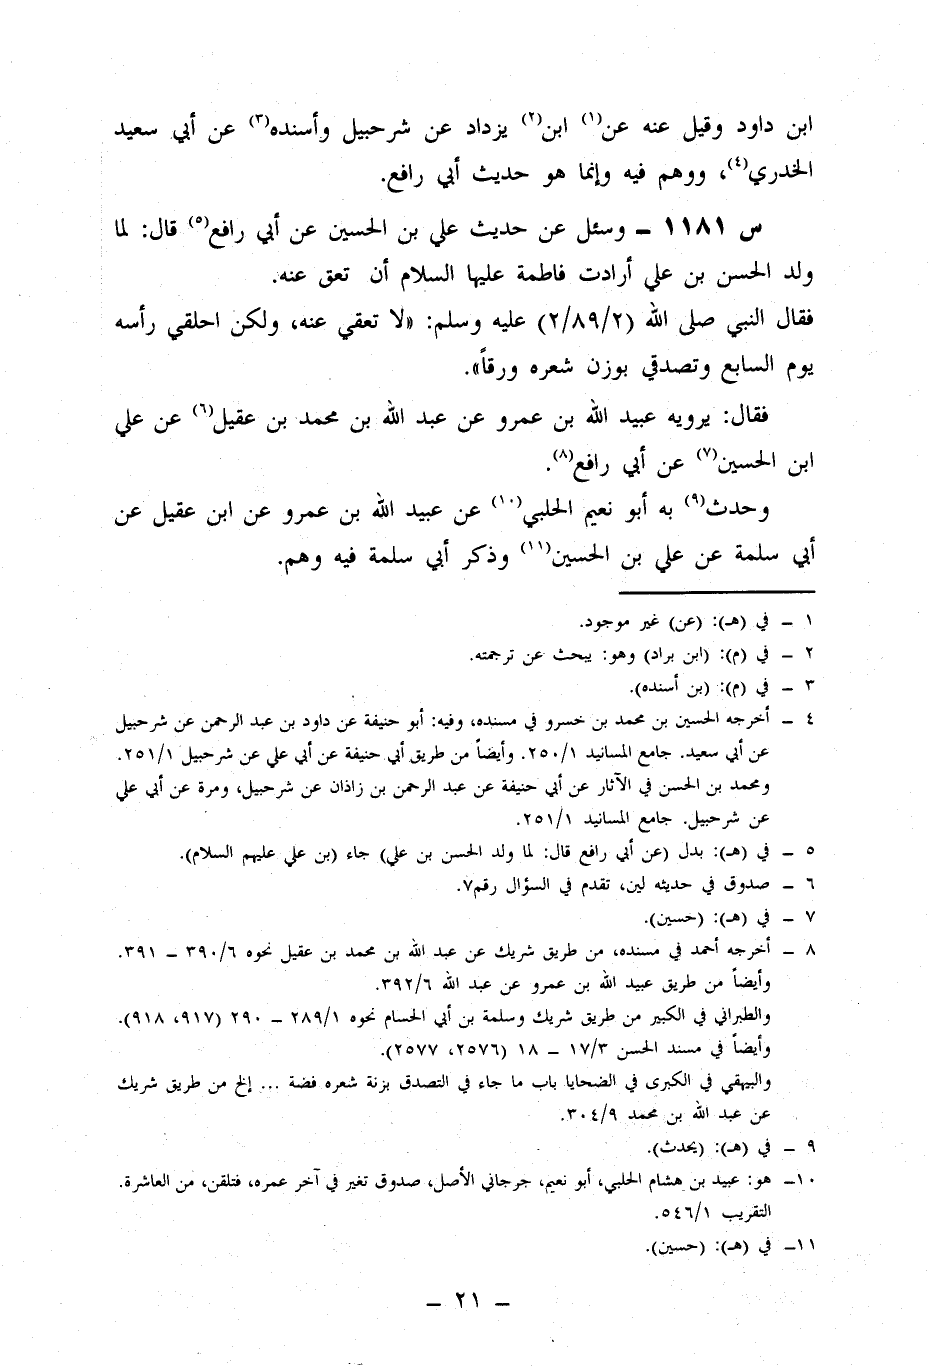 ابن داود وقيل عنه عن(١) ابن(٢) يزداد عن شرحبيل وأسنده(٣) عن أبي سعيد
الخدري(٤)، ووهم فيه وإنما هو حديث أبي رافع.
س ١١٨١ – وسئل عن حديث علي بن الحسين عن أبي رافع(٥) قال: لما
ولد الحسن بن علي أرادت فاطمة عليها السلام أن تعق عنه.
فقال النبي صلى الله (٢/٨٩/٢) عليه وسلم: «لا تعقي عنه، ولكن احلقي رأسه
يوم السابع وتصدقي بوزن شعره ورقاً».
فقال: يرويه عبيد الله بن عمرو عن عبد الله بن محمد بن عقيل(٦) عن علي
ابن الحسين(٧) عن أبي رافع(٨).
وحدث(٩) به أبو نعيم الحلبي(١٠) عن عبيد الله بن عمرو عن ابن عقيل عن
أبي سلمة عن علي بن الحسين(١١) وذكر أبي سلمة فيه وهم.
١ – في (هـ): (عن) غير موجود.
٢ – في (م): (ابن براد) وهو: يبحث عن ترجمته.
٣ – في (م): (بن أسنده).
٤ – أخرجه الحسين بن محمد بن خسرو في مسنده، وفيه: أبو حنيفة عن داود بن عبد الرحمن عن شرحبيل
عن أبي سعيد. جامع المسانيد ٢٥٠/١. وأيضاً من طريق أبي حنيفة عن أبي علي عن شرحبيل ٢٥١/١.
ومحمد بن الحسن في الآثار عن أبي حنيفة عن عبد الرحمن بن زاذان عن شرحبيل، ومرة عن أبي علي
عن شرحبيل. جامع المسانيد ٢٥١/١.
٥ – في (هـ): بدل (عن أبي رافع قال: لما ولد الحسن بن علي) جاء (بن علي عليهم السلام).
٦ – صدوق في حديثه لين، تقدم في السؤال رقم٧.
٧ – في (هـ): (حسين).
٨ – أخرجه أحمد في مسنده، من طريق شريك عن عبد الله بن محمد بن عقيل نحوه ٣٩٠/٦ – ٣٩١.
وأيضاً من طريق عبيد الله بن عمرو عن عبد الله ٣٩٢/٦.
والطبراني في الكبير من طريق شريك وسلمة بن أبي الحسام نحوه ٢٨٩/١ – ٢٩٠ (٩١٧، ٩١٨).
وأيضاً في مسند الحسن ١٧/٣ – ١٨ (٢٥٧٦، ٢٥٧٧).
والبيهقي في الكبرى في الضحايا باب ما جاء في التصدق بزنة شعره فضة ... إلخ من طريق شريك
عن عبد الله بن محمد ٣٠٤/٩.
٩ – في (هـ): (يحدث).
١٠– هو: عبيد بن هشام الحلبي، أبو نعيم، جرجاني الأصل، صدوق تغير في آخر عمره، فتلقن، من العاشرة.
التقريب ٥٤٦/١.
١١– في (هـ): (حسين).
– ٢١ –